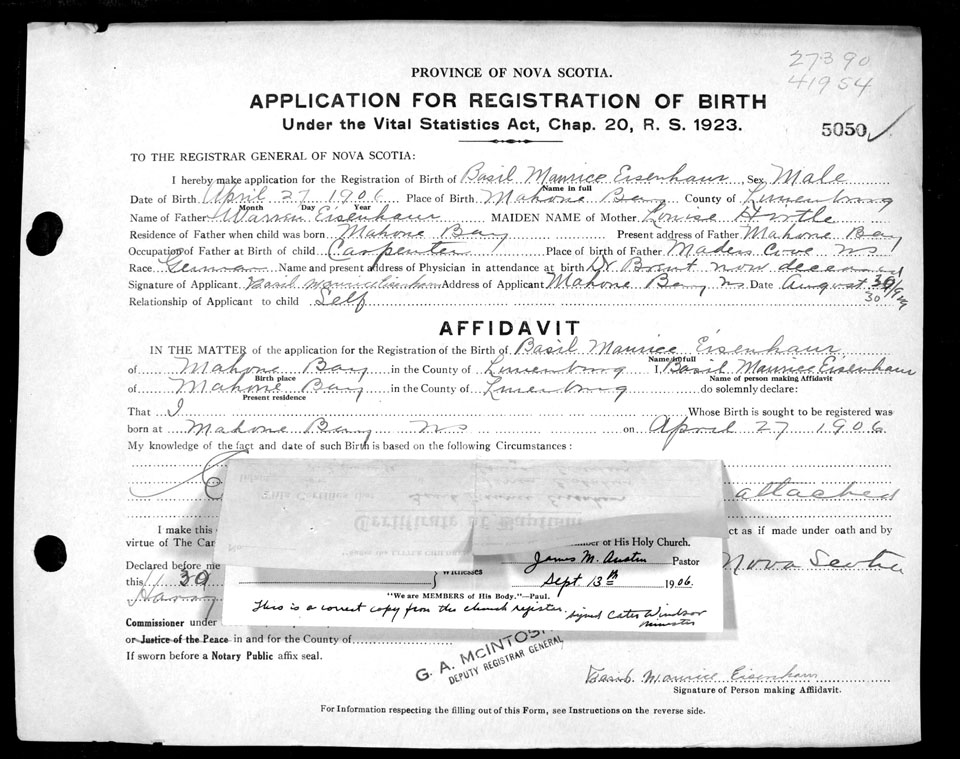 27390
41954
PROVINCE OF NOVA SCOTIA.
APPLICATION FOR REGISTRATION OF BIRTH
Under the Vital Statistics Act, Chap. 20, R. S. 1923.
5050
TO THE REGISTRAR GENERAL OF NOVA SCOTIA:
I hereby make application for the Registration of Birth of Basil Maurice Eisenhaur, Sex Male
Name in full
Date of Birth April 27 1906 Place of Birth Mahone Bay County of Lunenburg
Month Day Year
Name of Father Warren Eisenhaur MAIDEN NAME of Mother Louise Hirtle
Residence of Father when child was born Mahone Bay Present address of Father Mahone Bay
Occupation of Father at Birth of child Carpenter Place of birth of Father Maders Cove NS
Race German Name and present address of Physician in attendance at birth Dr now deceased
Signature of Applicant Basil Maurice Eisenhaur Address of Applicant Mahone Bay NS Date August 30
30
Relationship of Applicant to child Self
AFFIDAVIT
IN THE MATTER of the application for the Registration of the Birth of Basil Maurice Eisenhaur
Name in full
of Mahone Bay in the County of Lunenburg I, Basil Maurice Eisenhaur
Birth place Name of person making Affidavit
of Mahone Bay in the County of Lunenburg do solemnly declare:
Present residence
That I Whose Birth is sought to be registered was
born at Mahone Bay NS on April 27 1906
My knowledge of the fact and date of such Birth is based on the following Circumstances:
attached
This Certifies that
Certificate of Baptism
I make this ct as if made under oath and by
virtue of The Can
of His Holy Church.
James M. Austin Pastor
Nova Scotia
Declared before me
Witnesses
this 30
Sept. 13th 1906.
"We are MEMBERS of His Body."—Paul.
This is a correct copy from the church register. signed Windsor
minister
Commissioner under
or Justice of the Peace in and for the County of
G. A. McINTOSH
DEPUTY REGISTRAR GENERAL
If sworn before a Notary Public affix seal.
Basil Maurice Eisenhaur
Signature of Person making Affidavit.
For Information respecting the filling out of this Form, see Instructions on the reverse side.